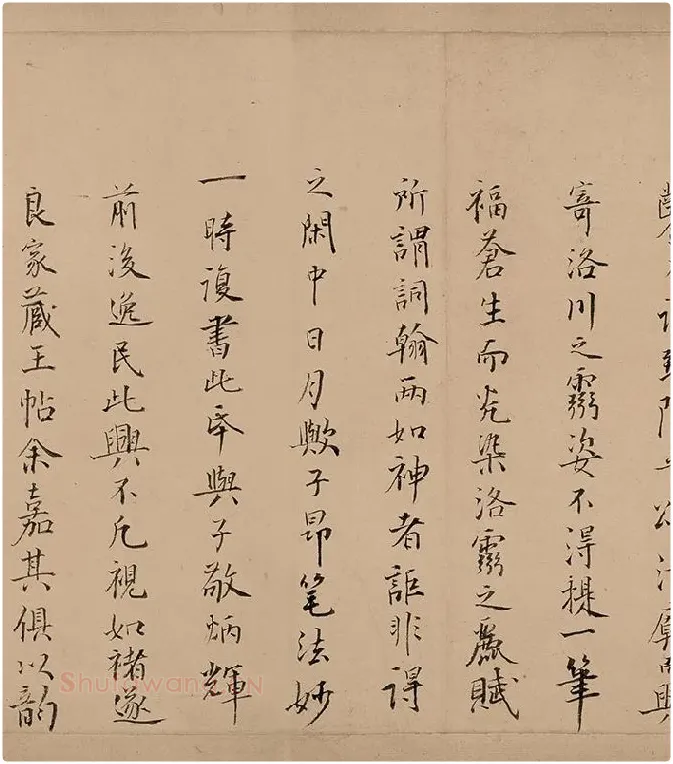 寄洛川之靈姿不得提一筆
福蒼生而先染洛靈之麗賦
所謂詞翰兩如神者詎非得
之閑中日月歟子昂筆法妙
一時復書此帋與子敬炳輝
前後逸民此興不凡視如褚遂
良家藏王帖余嘉其俱以韵